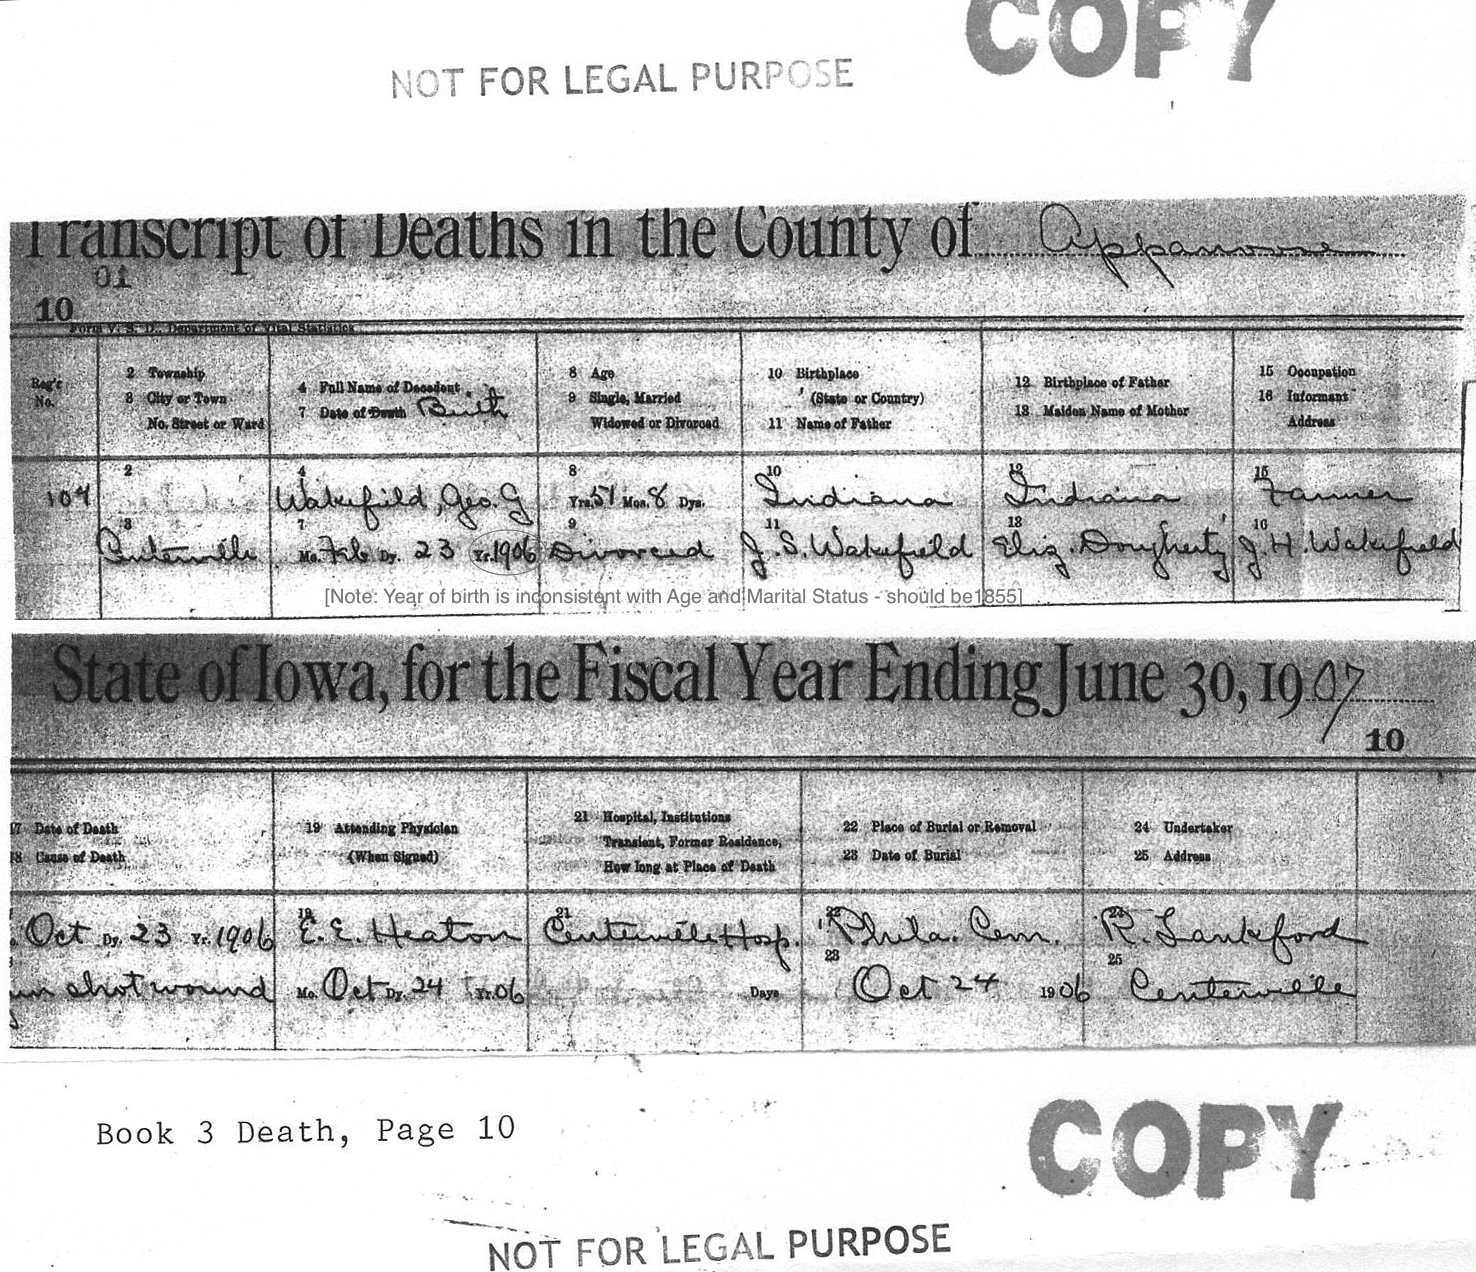 COPY
NOT FOR LEGAL PURPOSE
Transcript of Deaths in the County of Appanoose
01
10
Form V. S. D., Department of Vital Statistics
Reg'r No.
2 Township
3 City or Town
No. Street or Ward
4 Full Name of Decedent
7 Date of Death Birth
8 Age
9 Single, Married
Widowed or Divorced
10 Birthplace
(State or Country)
11 Name of Father
12 Birthplace of Father
13 Maiden Name of Mother
15 Occupation
16 Informant
Address
104
2
4 Wakefield, Geo. G
8 Yrs. 51 Mos. 8 Dys.
10 Indiana
12 Indiana
15 Farmer
3 Centerville
7 Mo. Feb Dy. 23 Yr. 1906
9 Divorced
11 J. S. Wakefield
13 Eliz. Dougherty
16 J. H. Wakefield
[Note: Year of birth is inconsistent with Age and Marital Status - should be1855]
State of Iowa, for the Fiscal Year Ending June 30, 1907
10
17 Date of Death
18 Cause of Death
19 Attending Physician
(When Signed)
21 Hospital, Institutions
Transient, Former Residence,
How long at Place of Death
22 Place of Burial or Removal
23 Date of Burial
24 Undertaker
25 Address
Oct Dy. 23 Yr. 1906
19 E. E. Heaton
21 Centerville Hosp.
22 Phila. Cem.
24 R. Lankford
un shot wound
Mo. Oct Dy. 24 Yr. 06
Days
23 Oct 24 1906
25 Centerville
Book 3 Death, Page 10
COPY
NOT FOR LEGAL PURPOSE